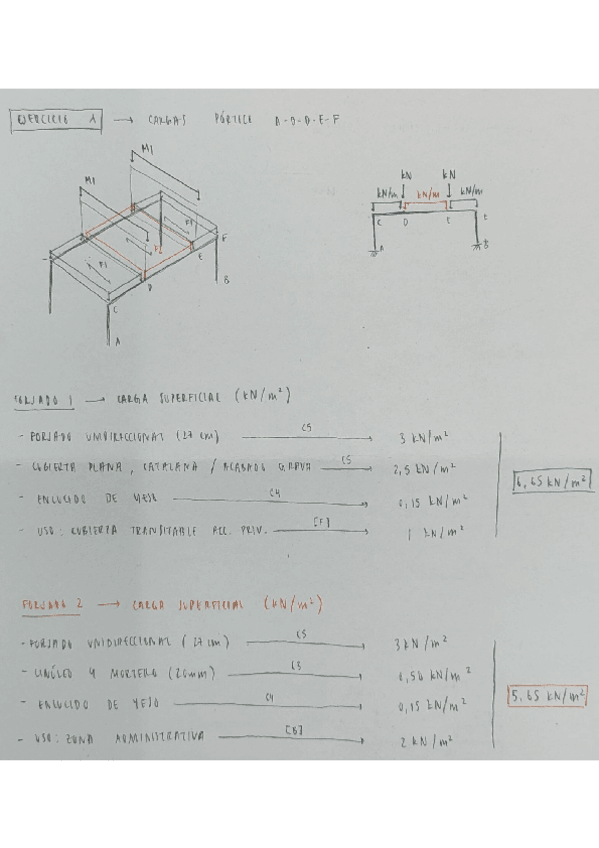 EJERCICIO 1 → CARGAS PÓRTICO A-C-D-E-F
M1
M1
kN kN
kN/m kN/m kN/m
F1
F1
F
E
B
D
C
A
C D E F
A B
FORJADO 1 → CARGA SUPERFICIAL (kN/m²)
- FORJADO UNIDIRECCIONAL (27 cm) C5 → 3 kN/m²
- CUBIERTA PLANA, CATALANA / ACABADO GRAVA C5 → 2,5 kN/m²
- ENLUCIDO DE YESO C4 → 0,15 kN/m²
- USO: CUBIERTA TRANSITABLE ACC. PRIV. [F] → 1 kN/m²
6,65 kN/m²
FORJADO 2 → CARGA SUPERFICIAL (kN/m²)
- FORJADO UNIDIRECCIONAL (27 cm) C5 → 3 kN/m²
- LINÓLEO Y MORTERO (20mm) C3 → 0,50 kN/m²
- ENLUCIDO DE YESO C4 → 0,15 kN/m²
- USO: ZONA ADMINISTRATIVA [B] → 2 kN/m²
5,65 kN/m²